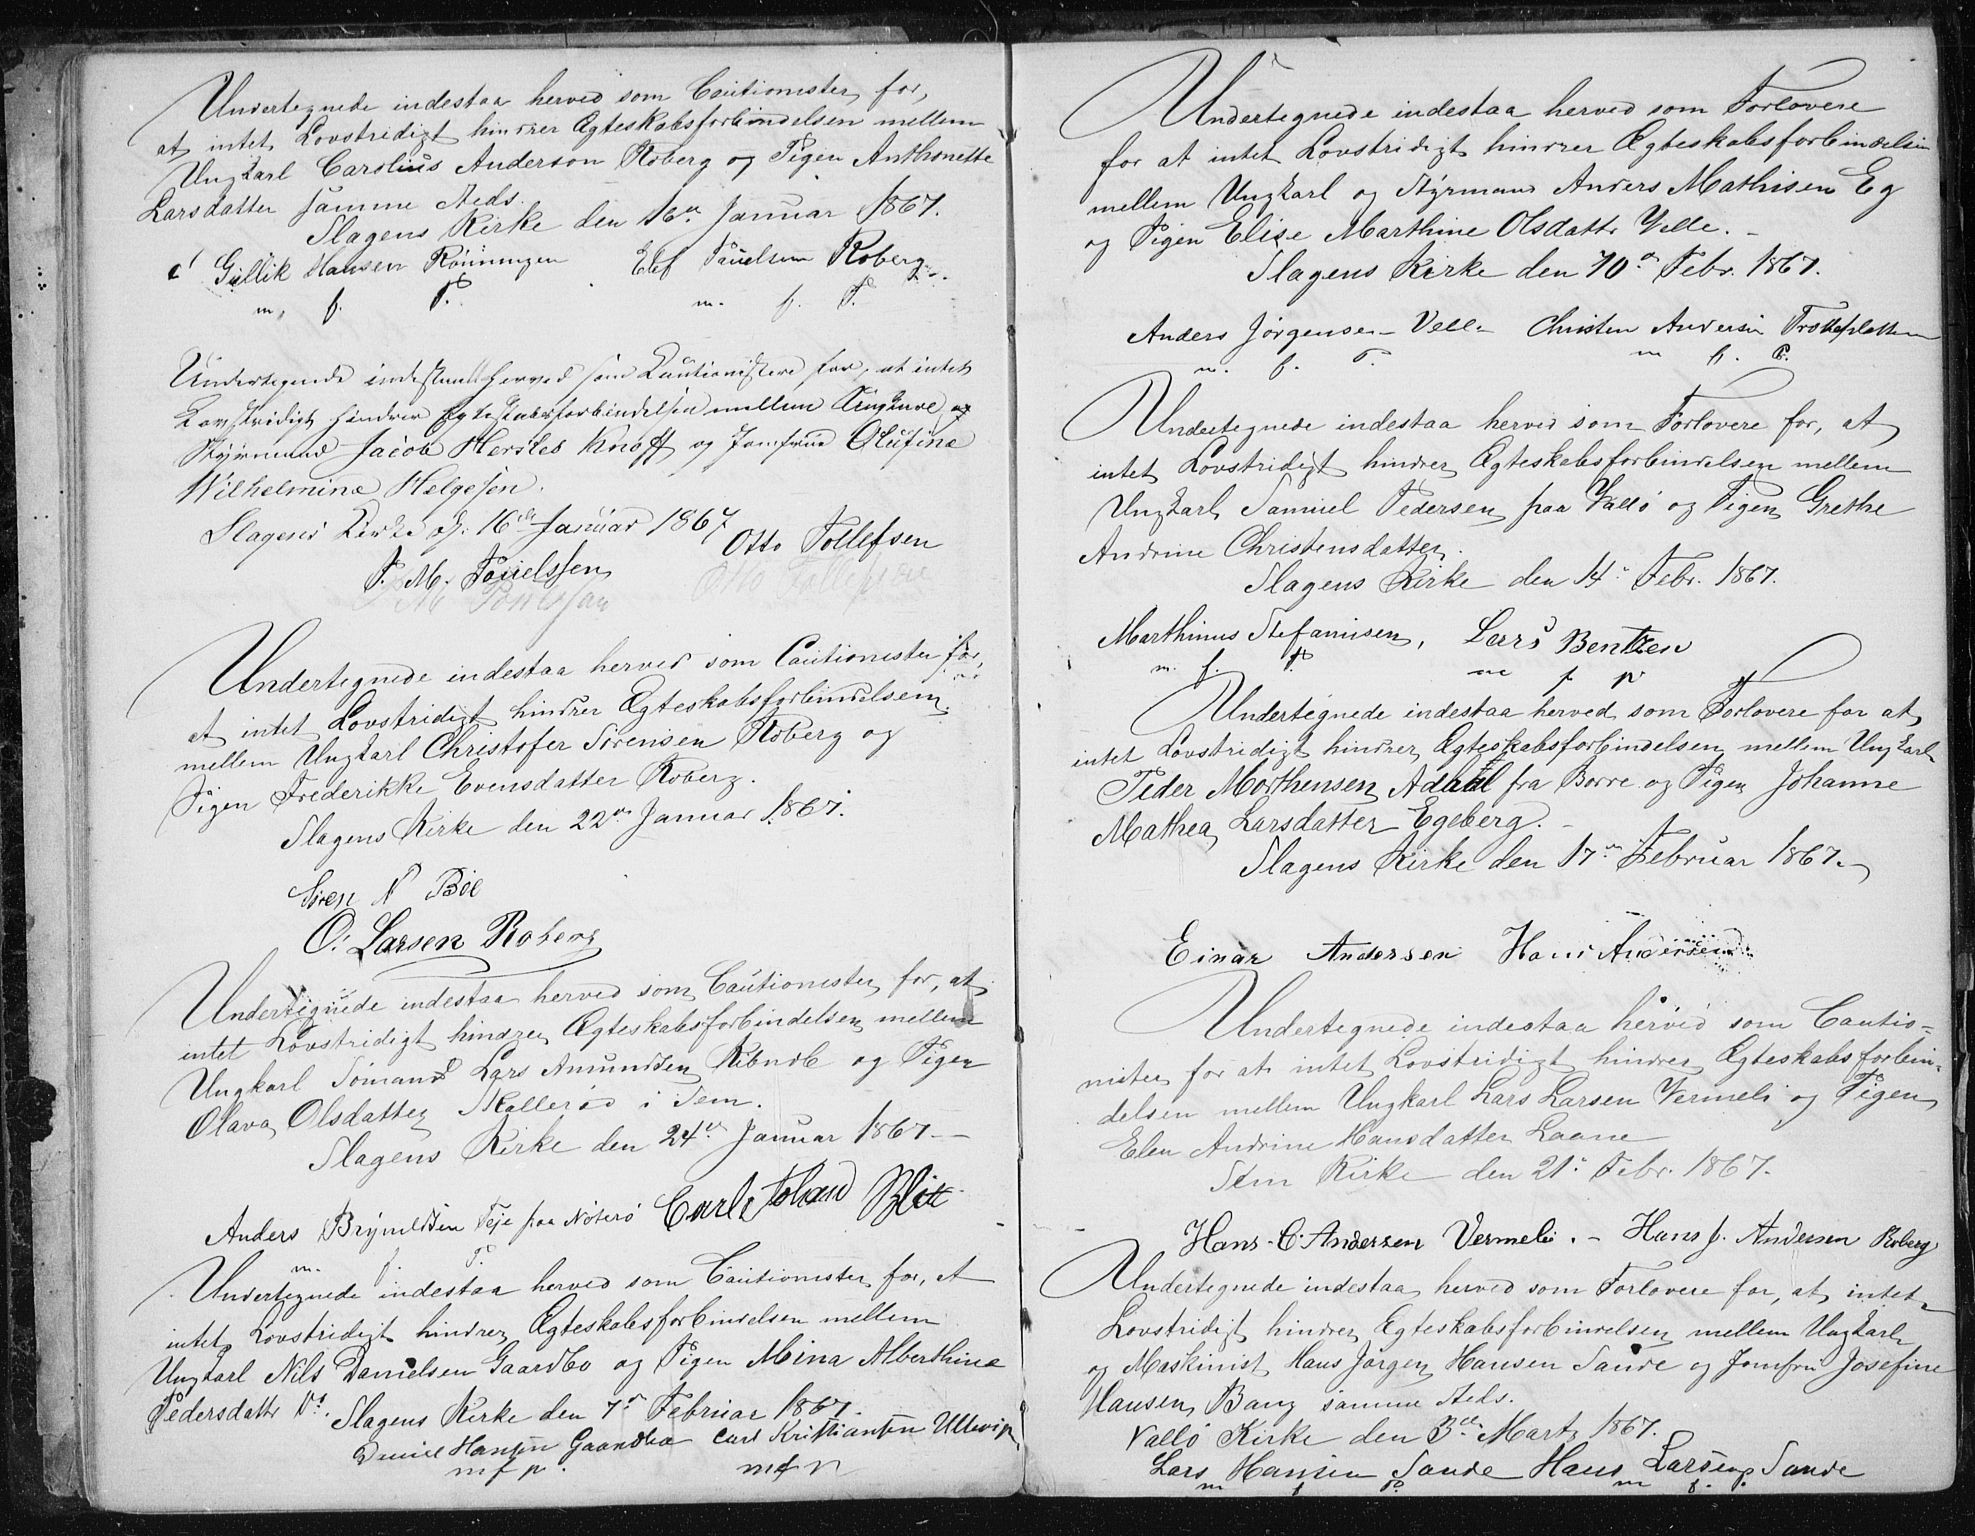 Undertegnede indestaa herved som Cautionister, for,
at intet Lovstridigt hindrer Ægteskabsforbindelsen mellem
Ungkarl Carolius Anderson Roberg og Pigen Anthonette
Larsdatter samme Steds.
Slagens Kirke den 16de Januar 1867.
Gullik Hansen Rönningen Elef Paulsen Roberg
m. f. P. m. f. P.
Undertegnede indestaa herved som Cautionistere for, at intet
Lovstridigt hindrer Egteskabsforbindelsen mellem Ungkarl og
Styrmand Jacob Hersleb Knoff og Jomfrue Olufine
Wilhelmine Helgesen.
Slagens Kirke d. 16de Januar 1867
Otto Tollefsen
P. M. Pouelssen
Undertegnede indestaa herved som Cautionister for,
at intet Lovstridigt hindrer Ægteskabsforbindelsen
mellem Ungkarl Christofer Sørensen Roberg og
Pigen Frederikke Evensdatter Roberg.
Slagens Kirke den 22de Januar 1867.
Sören N Böe
O. Larsen Roberg
Undertegnede indestaa herved som Cautionister, for, at
intet Lovstridigt hindrer Ægteskabsforbindelsen mellem
Ungkarl Sømand Lars Amundsen og Pigen
Olava Olsdatter Skallerød i Sem.
Slagens Kirke den 24de Januar 1867.
Anders Brynildsen Teje paa Nøterø Carl Johan Blix
m. f. P.
Undertegnede indestaa herved som Cautionister, for, at
intet Lovstridigt hindrer Ægteskabsforbindelsen mellem
Ungkarl Nils Danielsen Gaardbo og Pigen Mina Alberthine
Pedersdatter Slagens Kirke den 7de Februar 1867.
Daniel Hansen Gaardbo Carl Kristiansen
m f p. m f p
Undertegnede indestaa herved som Forlovere
for at intet Lovstridigt hindrer Ægteskabsforbindelsen
mellem Ungkarl og Styrmand Anders Mathisen Eg
og Pigen Elise Marthine Olsdatter Velle.
Slagens Kirke den 10de Febr. 1867.
Anders Jørgensen Velle Christen Andersen
m. f. P. m f. P.
Undertegnede indestaa herved som Forlovere for, at
intet Lovstridigt hindrer Ægteskabsforbindelsen mellem
Ungkarl Samuel Pedersen paa Vallö og Pigen Grethe
Andrine Christensdatter.
Slagens Kirke den 14de Febr. 1867.
Marthinus Stefanisen, Lars Bentzen
m. f. P. m f p
Undertegnede indestaa herved som Forlovere for at
intet Lovstridigt hindrer Ægteskabsforbindelsen mellem Ungkarl
Peder Morthensen Adahl fra Borre og Pigen Johanne
Mathea Larsdatter Egeberg.
Slagens Kirke den 17de Februar 1867.
Einar Andersen Hans Andersen
Undertegnede indestaa herved som Cautio=
nister for at intet Lovstridigt hindrer Ægteskabsforbin=
delsen mellem Ungkarl Lars Larsen Vermeli og Pigen
Elen Andrine Hansdatter Laane
Sem Kirke den 21de Febr. 1867.
Hans C. Andersen Vermeli. - Hans J. Andersen Roberg
Undertegnede indestaa herved som Forlovere for, at intet
Lovstridigt hindrer Ægteskabsforbindelsen mellem Ungkarl
og Maskinist Hans Jørgen Hansen Sande og Jomfru Josefine
Hansen Bang samme Steds.
Vallö Kirke den 3de Marts 1867.
Lars Hansen Sande Hans Larsen Sande
m f P. m f. P.